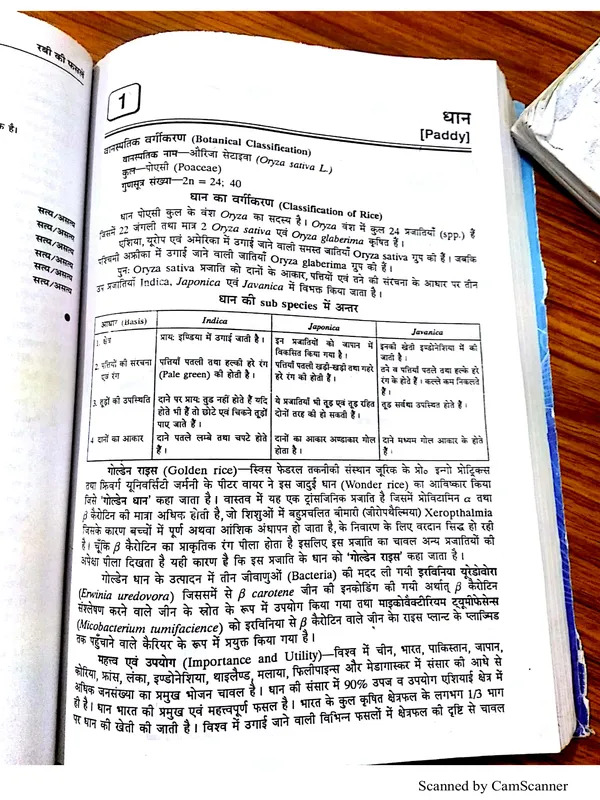 रबी की फसलें
क है।
सत्य/असत्य
सत्य/असत्य
सत्य/असत्य
सत्य/असत्य
सत्य/असत्य
सत्य/असत्य
1
धान
[Paddy]
वानस्पतिक वर्गीकरण (Botanical Classification)
वानस्पतिक नाम—औरिजा सेटाइवा (Oryza sativa L.)
कुल—पोएसी (Poaceae)
गुणसूत्र संख्या—2n = 24; 40
धान का वर्गीकरण (Classification of Rice)
धान पोएसी कुल के वंश Oryza का सदस्य है। Oryza वंश में कुल 24 प्रजातियाँ (spp.) हैं
जिसमें 22 जंगली तथा मात्र 2 Oryza sativa एवं Oryza glaberima कृषित हैं।
एशिया, यूरोप एवं अमेरिका में उगाई जाने वाली समस्त जातियाँ Oryza sativa ग्रुप की हैं। जबकि
पश्चिमी अफ्रीका में उगाई जाने वाली जातियाँ Oryza glaberima ग्रुप की हैं।
पुनः Oryza sativa प्रजाति को दानों के आकार, पत्तियों एवं तने की संरचना के आधार पर तीन
उप प्रजातियाँ Indica, Japonica एवं Javanica में विभक्त किया जाता है।
धान की sub species में अन्तर
आधार (Basis) Indica Japonica Javanica
1. क्षेत्र प्रायः इण्डिया में उगाई जाती है। इन प्रजातियों को जापान में इनकी खेती इण्डोनेशिया में की
विकसित किया गया है। जाती है।
2. पत्तियों की संरचना पत्तियाँ पतली तथा हल्की हरे रंग पत्तियाँ पतली खड़ी-खड़ी तथा गहरे तने व पत्तियाँ पतले तथा हल्के हरे
एवं रंग (Pale green) की होती है। हरे रंग की होती हैं। रंग के होते हैं। कल्ले कम निकलते
हैं।
3. तूड़ों की उपस्थिति दाने पर प्रायः तुड़ नहीं होते हैं यदि ये प्रजातियाँ भी तूड़ एवं तूड़ रहित तूड़ सर्वथा उपस्थित होते हैं।
होते भी हैं तो छोटे एवं चिकने तूड़ों दोनों तरह की हो सकती हैं।
पाए जाते हैं।
4 दानों का आकार दाने पतले लम्बे तथा चपटे होते दानों का आकार अण्डाकार गोल दाने मध्यम गोल आकार के होते
हैं। होता है। हैं।
गोल्डेन राइस (Golden rice)—स्विस फेडरल तकनीकी संस्थान जूरिक के प्रो० इन्गो प्रोट्रिक्स
तथा फ्रिवर्ग यूनिवर्सिटी जर्मनी के पीटर वायर ने इस जादुई धान (Wonder rice) का आविष्कार किया
जिसे 'गोल्डेन धान' कहा जाता है। वास्तव में यह एक ट्रांसजिनिक प्रजाति है जिसमें प्रोविटामिन α तथा
β कैरोटिन की मात्रा अधिक होती है, जो शिशुओं में बहुप्रचलित बीमारी (जीरोपथैल्मिया) Xeropthalmia
जिसके कारण बच्चों में पूर्ण अथवा आंशिक अंधापन हो जाता है, के निवारण के लिए वरदान सिद्ध हो रही
है। चूँकि β कैरोटिन का प्राकृतिक रंग पीला होता है इसलिए इस प्रजाति का चावल अन्य प्रजातियों की
अपेक्षा पीला दिखता है यही कारण है कि इस प्रजाति के धान को 'गोल्डेन राइस' कहा जाता है।
गोल्डेन धान के उत्पादन में तीन जीवाणुओं (Bacteria) की मदद ली गयी इरविनिया यूरेडोवोरा
(Erwinia uredovora) जिससमें से β carotene जीन की इनकोडिंग की गयी अर्थात् β कैरोटिन
संश्लेषण करने वाले जीन के स्रोत के रूप में उपयोग किया गया तथा माइकोवैक्टीरियम ट्यूमीफेसेन्स
(Micobacterium tumifacience) को इरविनिया से β कैरोटिन वाले जीन का राइस प्लान्ट के प्लाज्मिड
तक पहुँचाने वाले कैरियर के रूप में प्रयुक्त किया गया है।
महत्त्व एवं उपयोग (Importance and Utility)—विश्व में चीन, भारत, पाकिस्तान, जापान,
कोरिया, फ्रांस, लंका, इण्डोनेशिया, थाइलैण्ड, मलाया, फिलीपाइन्स और मेडागास्कर में संसार की आधे से
अधिक जनसंख्या का प्रमुख भोजन चावल है। धान की संसार में 90% उपज व उपयोग एशियाई क्षेत्र में
ही है। धान भारत की प्रमुख एवं महत्त्वपूर्ण फसल है। भारत के कुल कृषित क्षेत्रफल के लगभग 1/3 भाग
पर धान की खेती की जाती है। विश्व में उगाई जाने वाली विभिन्न फसलों में क्षेत्रफल की दृष्टि से चावल
Scanned by CamScanner